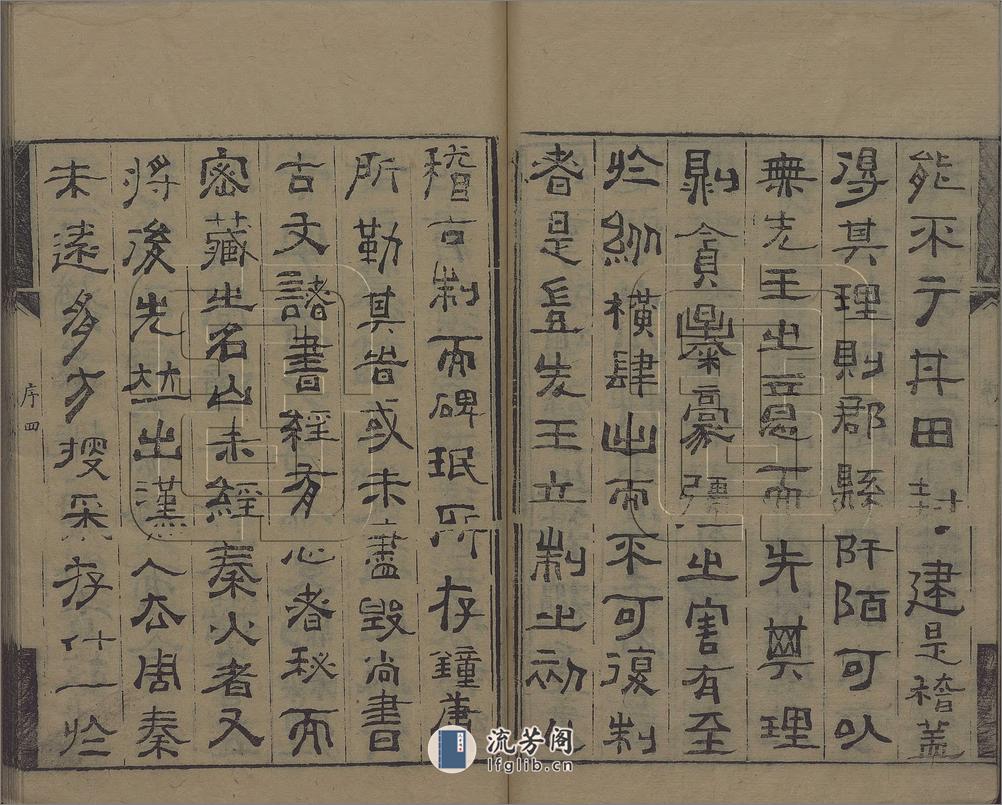 能不于井田封建是稽蓋
得其理則郡縣阡陌可以
無先王之意而失其理
則貪暴豪彊之害有至
於縱橫肆出而不可復制
者是豈先王立制之初
稽古制而碑珉所存鐘
所勒其皆或未盡毀尚書
古文諸書經有心者秘而
密藏之名山未經秦火者又
將後先並出漢人去周秦
未遠多方搜采存什一於
序 四
流芳阁
lfglib.cn